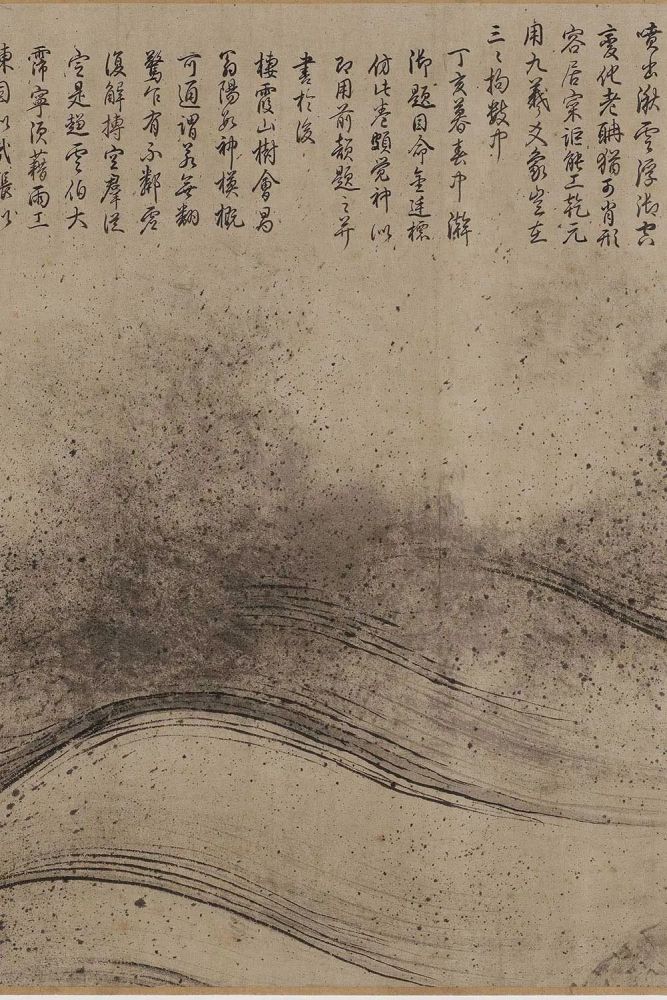 噴出潑雲浮
變化老聃猶可肖形
容居寀詎能工乾元
用九羲爻象豈在
三〻拘數中
丁亥暮春中澣
御題因命金廷標
仿此卷頗覺神似
即用前韻題之并
書於後
棲霞山樹會昌
翁陽神模概
可通謂若無翻
驚乍有不鄰虛
復解摶空羣從
定是趙雲伯大
霈寧須藉雨工